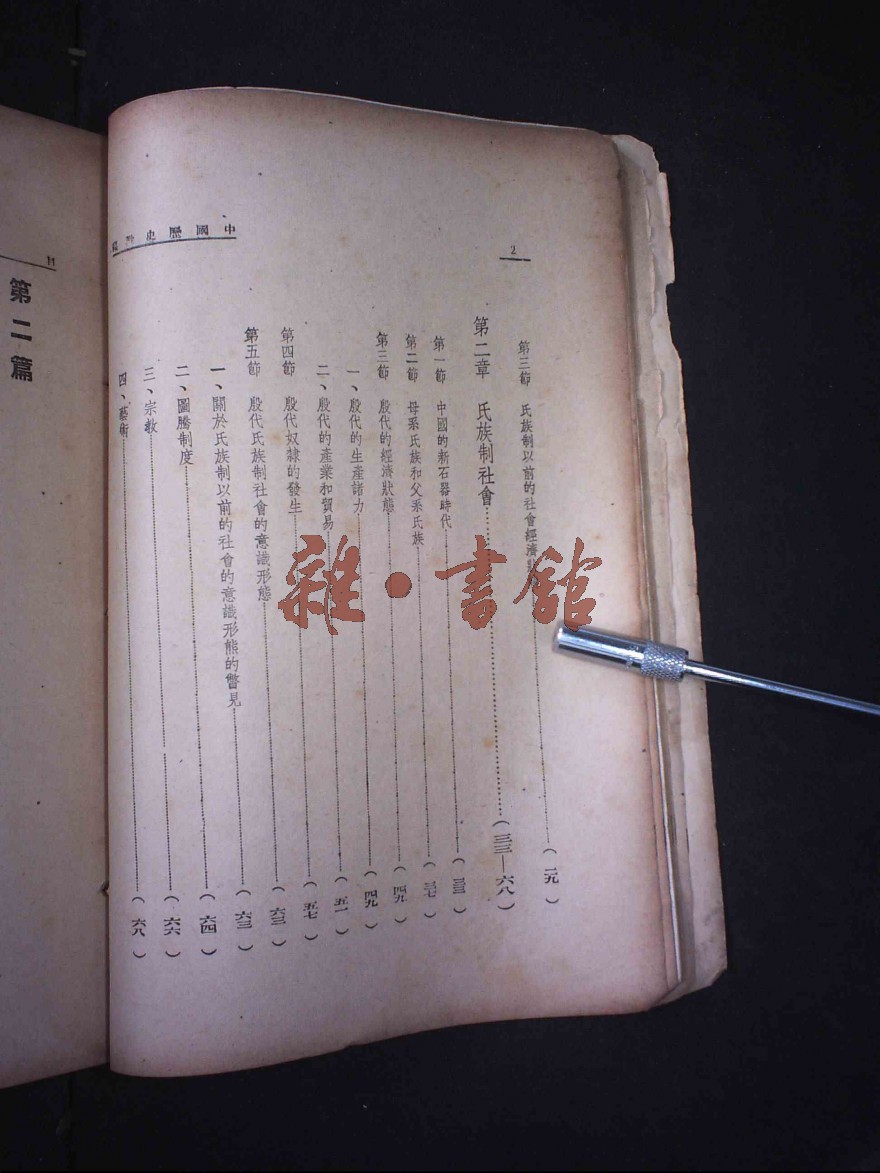 中國歷史
2
第三節 氏族制以前的社會經濟狀……(二九)
第二章 氏族制社會……(三三—六八)
第一節 中國的新石器時代……(三三)
第二節 母系氏族和父系氏族……(三七)
第三節 殷代的經濟狀態……(四九)
一、殷代的生產諸力……(四九)
二、殷代的產業和貿易……(五一)
第四節 殷代奴隸的發生……(五七)
第五節 殷代氏族制社會的意識形態……(六三)
一、關於氏族制以前的社會的意識形態的瞥見……(六三)
二、圖騰制度……(六四)
三、宗教……(六六)
四、藝術……(六八)
第二篇
雜·書館